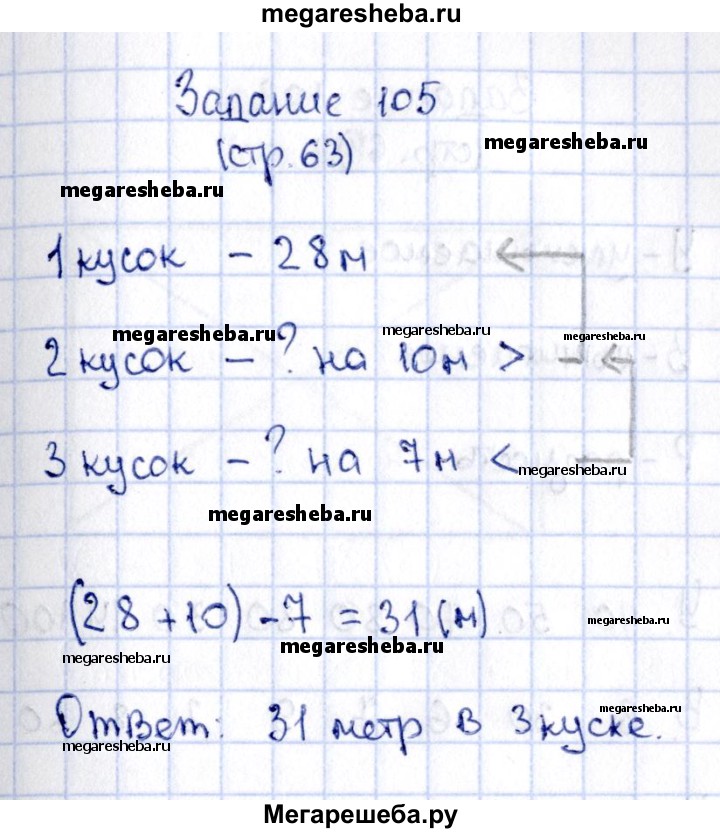 megaresheba.ru
Задание 105
(стр. 63)
megaresheba.ru
megaresheba.ru
1 кусок – 28 м
megaresheba.ru
megaresheba.ru
megaresheba.ru
2 кусок – ? на 10 м >
3 кусок – ? на 7 м <
megaresheba.ru
megaresheba.ru
(28 + 10) – 7 = 31 (м)
megaresheba.ru
megaresheba.ru
megaresheba.ru
Ответ: 31 метр в 3 куске.
megaresheba.ru
megaresheba.ru
Мегарешеба.ру